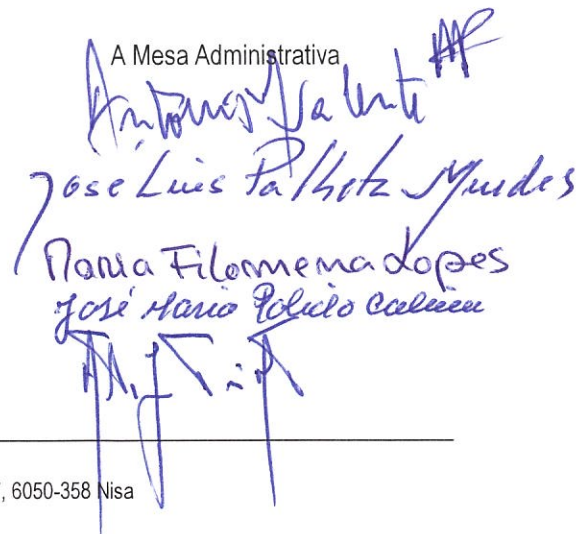 A Mesa Administrativa
António Valente
José Luis Palheta Mendes
Maria Filomena Lopes
José Maria Polido
, 6050-358 Nisa